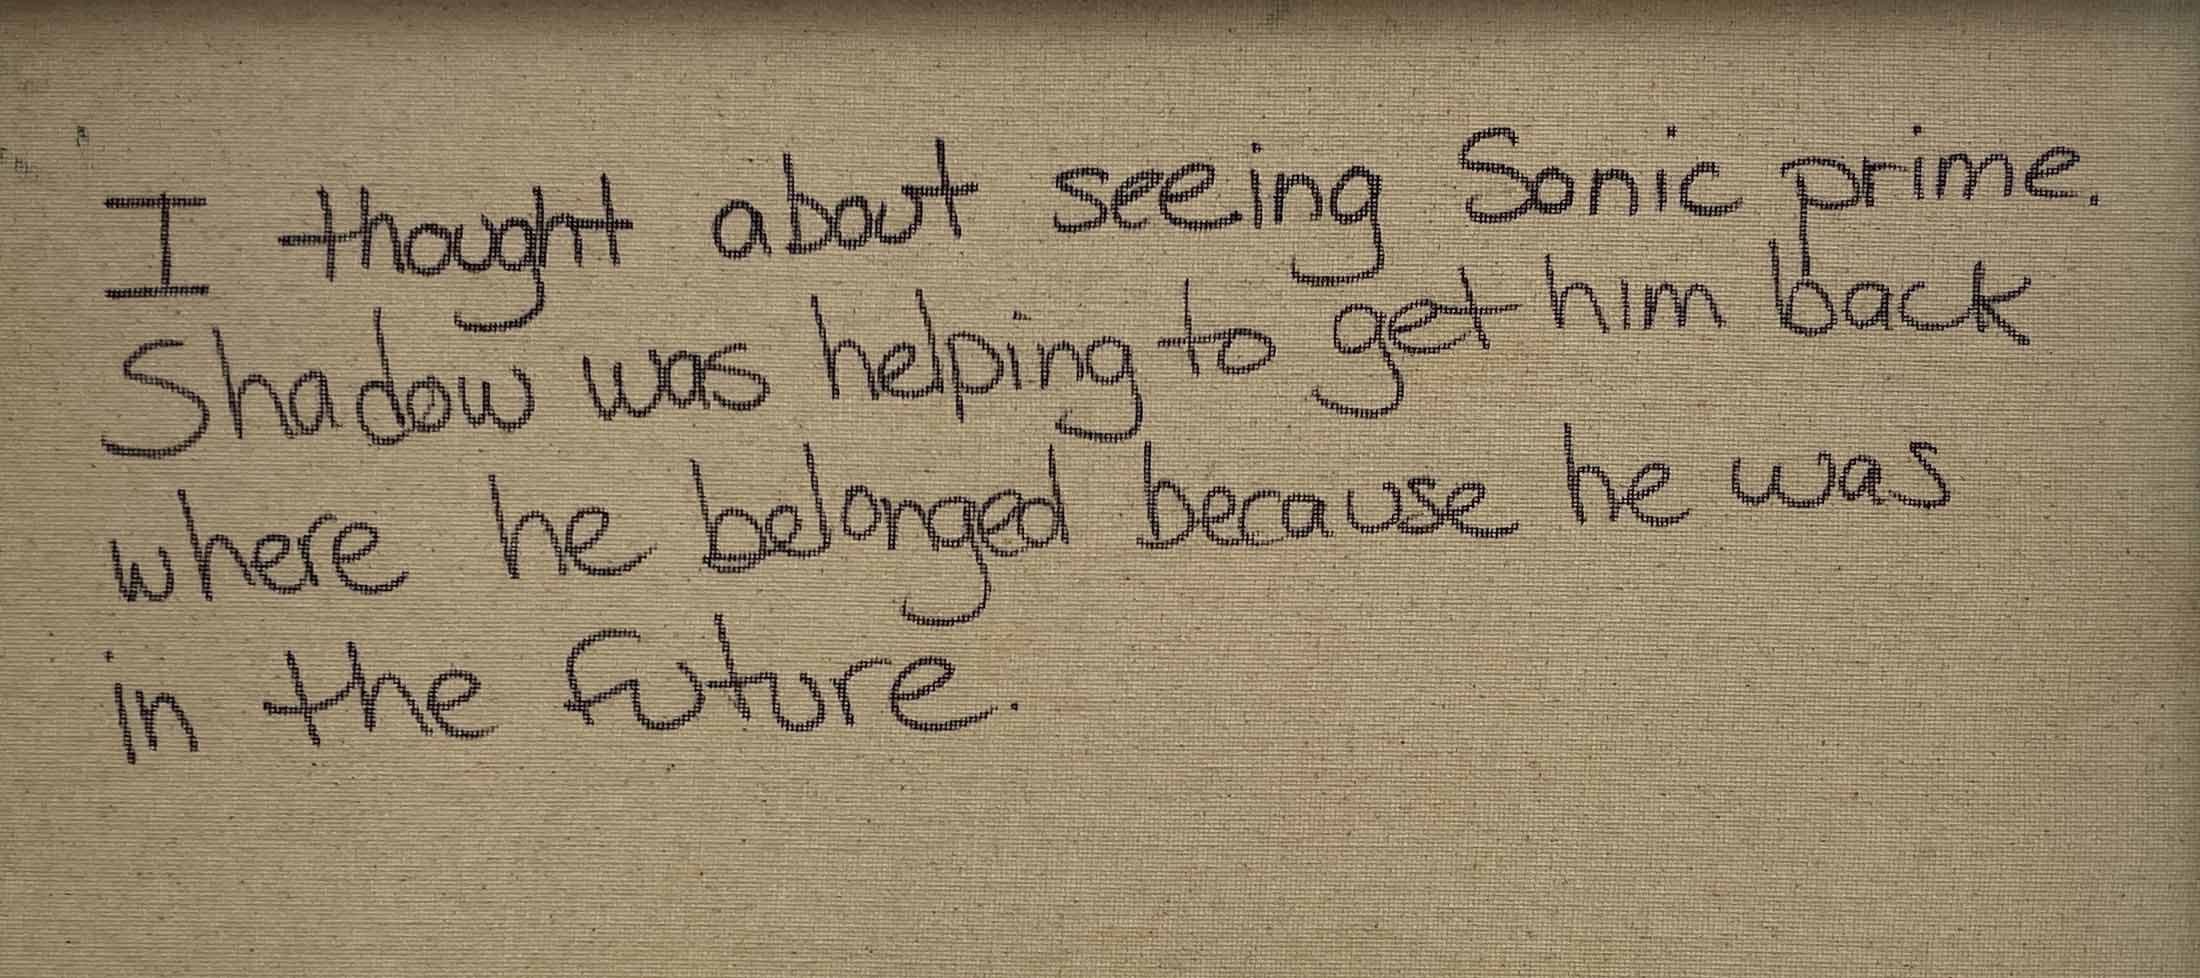 I thought about seeing Sonic prime.
Shadow was helping to get him back
where he belonged because he was
in the future.